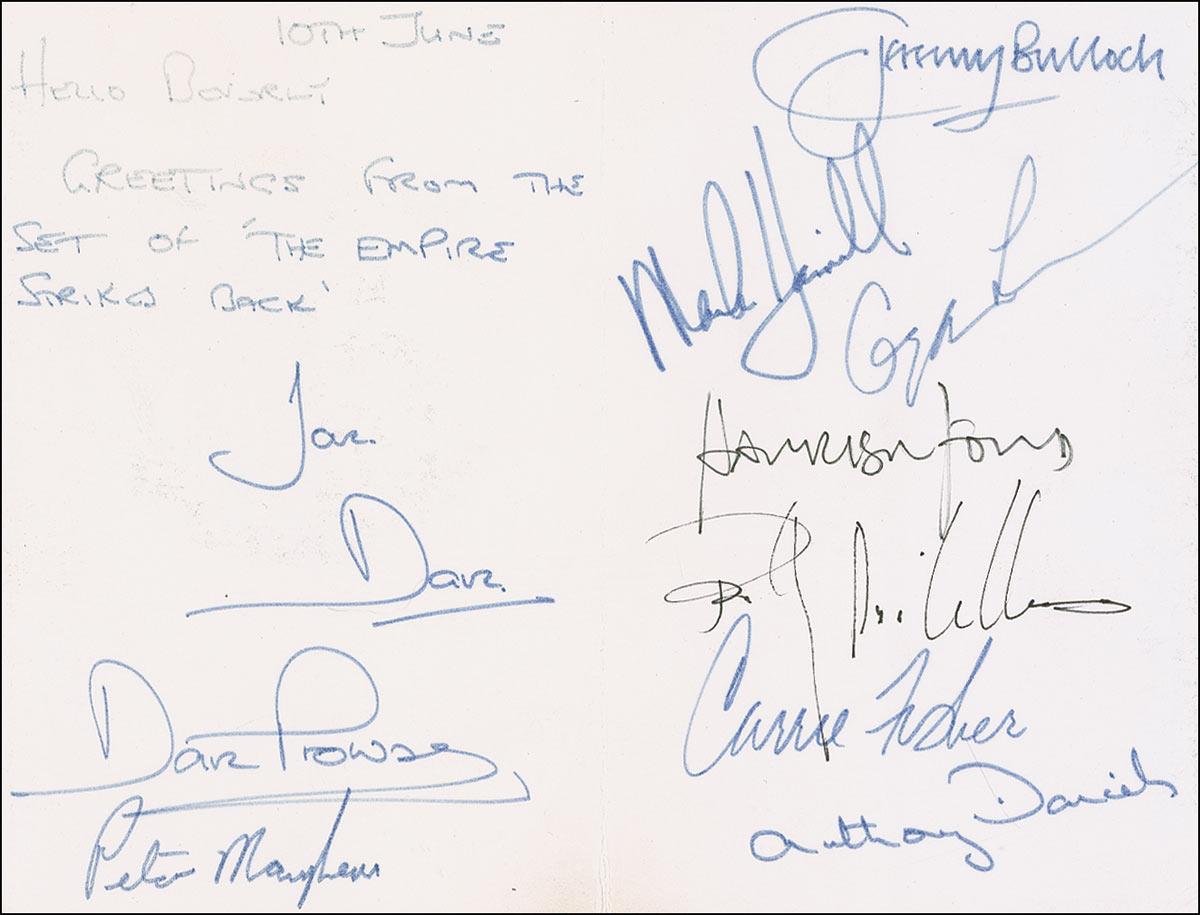 10TH JUNE
HELLO BEVERLY
GREETINGS FROM THE
SET OF 'THE EMPIRE
STRIKES BACK'
Love
Dave.
Dave Prowse
Peter Mayhew
Jeremy Bulloch
Mark Hamill
HARRISON FORD
Billy Dee Williams
Carrie Fisher
Anthony Daniels